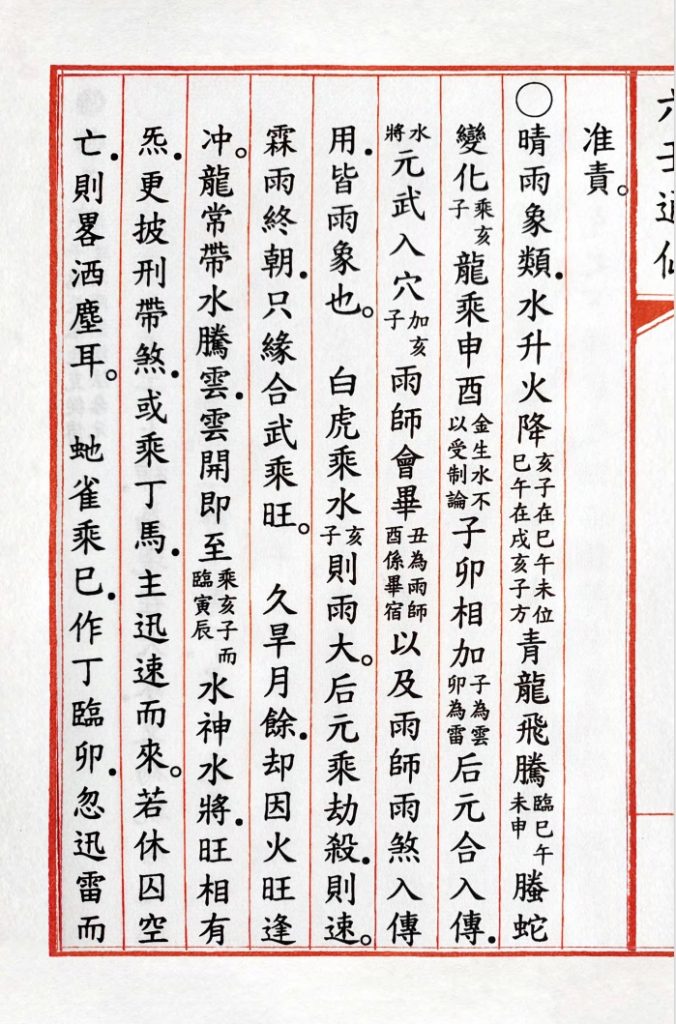 六壬通仙
准責。
○晴雨象類．水升火降亥子在巳午未位巳午在戌亥子方青龍飛騰臨巳午未申螣蛇
變化乘亥子龍乘申酉金生水不以受制論子卯相加子為雲卯為雷后元合入傳．
水將元武入穴加亥子雨師會畢丑為雨師酉係畢宿以及雨師雨煞入傳
用．皆雨象也。　白虎乘水亥子則雨大。后元乘劫殺．則速。
霖雨終朝．只緣合武乘旺。　久旱月餘．却因火旺逢
冲。龍常帶水騰雲．雲開即至乘亥子而臨寅辰水神水將．旺相有
炁．更披刑帶煞．或乘丁馬．主迅速而來。若休囚空
亡．則畧洒塵耳。　虵雀乘巳．作丁臨卯．忽迅雷而